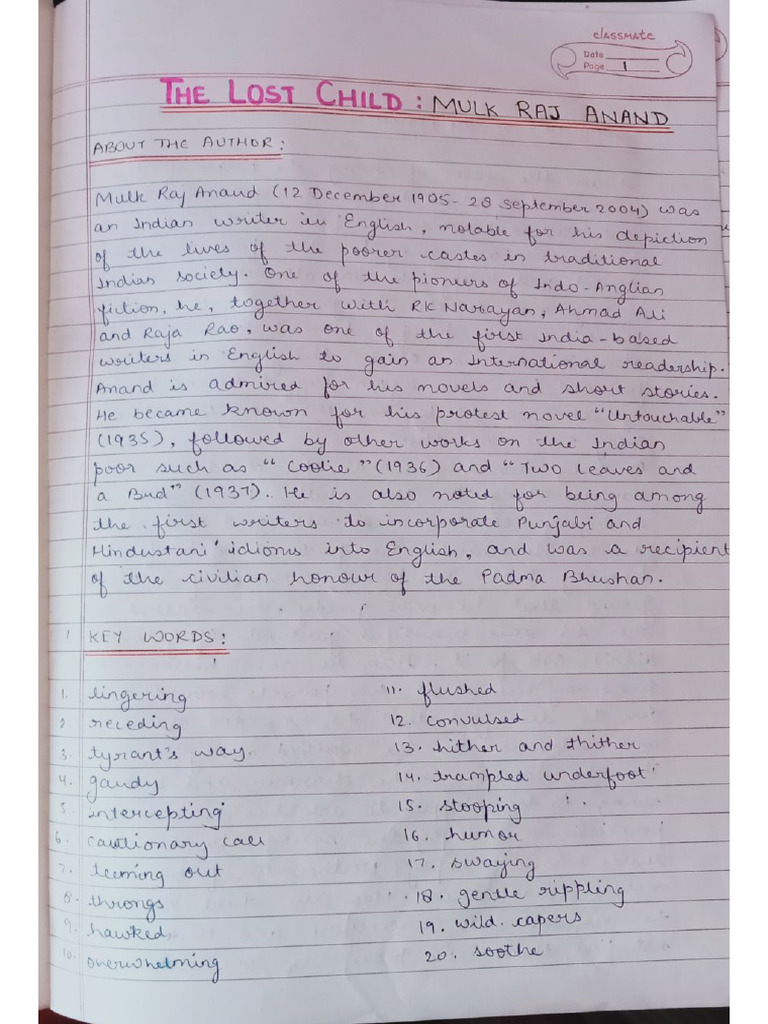 classmate
Date
Page 1
THE LOST CHILD : MULK RAJ ANAND
ABOUT THE AUTHOR :
Mulk Raj Anand (12 December 1905- 28 September 2004) was
an Indian writer in English, notable for his depiction
of the lives of the poorer castes in traditional
Indian society. One of the pioneers of Indo-Anglian
fiction, he, together with RK Narayan, Ahmad Ali
and Raja Rao, was one of the first India-based
writers in English to gain an International readership.
Anand is admired for his novels and short stories.
He became known for his protest novel "Untouchable"
(1935), followed by other works on the Indian
poor such as "Coolie" (1936) and "Two leaves and
a Bud" (1937). He is also noted for being among
the first writers to incorporate Punjabi and
Hindustani idioms into English, and was a recipient
of the civilian honour of the Padma Bhushan.
1 KEY WORDS :
1. lingering
2 receding
3. tyrant's way.
4. gaudy
5. intercepting
6. cautionary call
7. teeming out
8. throngs
9. hawked
10. overwhelming
11. flushed
12. convulsed
13. hither and thither
14. trampled underfoot
15. stooping
16. humor
17. swaying
18. gentle rippling
19. wild capers
20. soothe